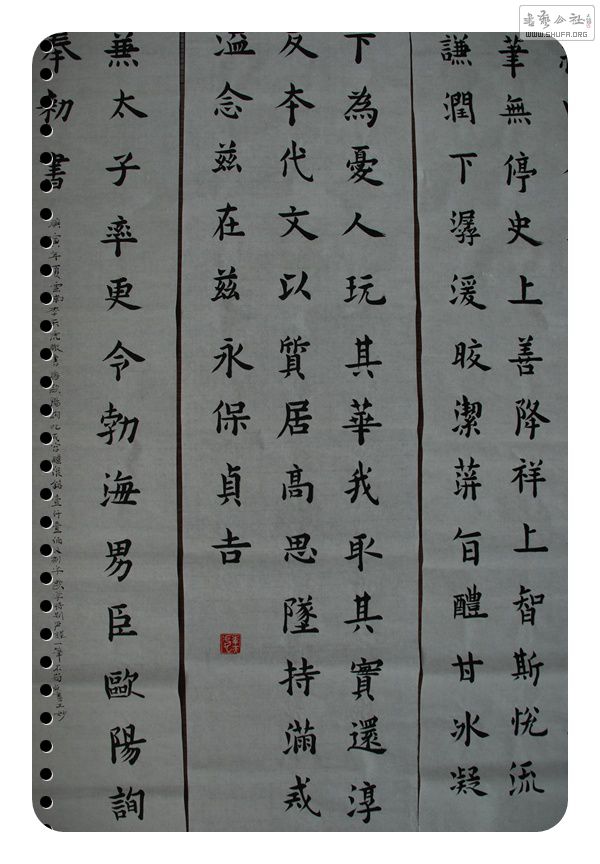 書藝公社
WWW.SHUFA.ORG
筆無停史上善降祥上智斯悅流
謙潤下潺湲皎潔蓱旨醴甘冰凝
下為憂人玩其華我取其實還淳
反本代文以質居高思墜持滿戒
溢念茲在茲永保貞吉
兼太子率更令勃海男臣歐陽詢
奉勅書